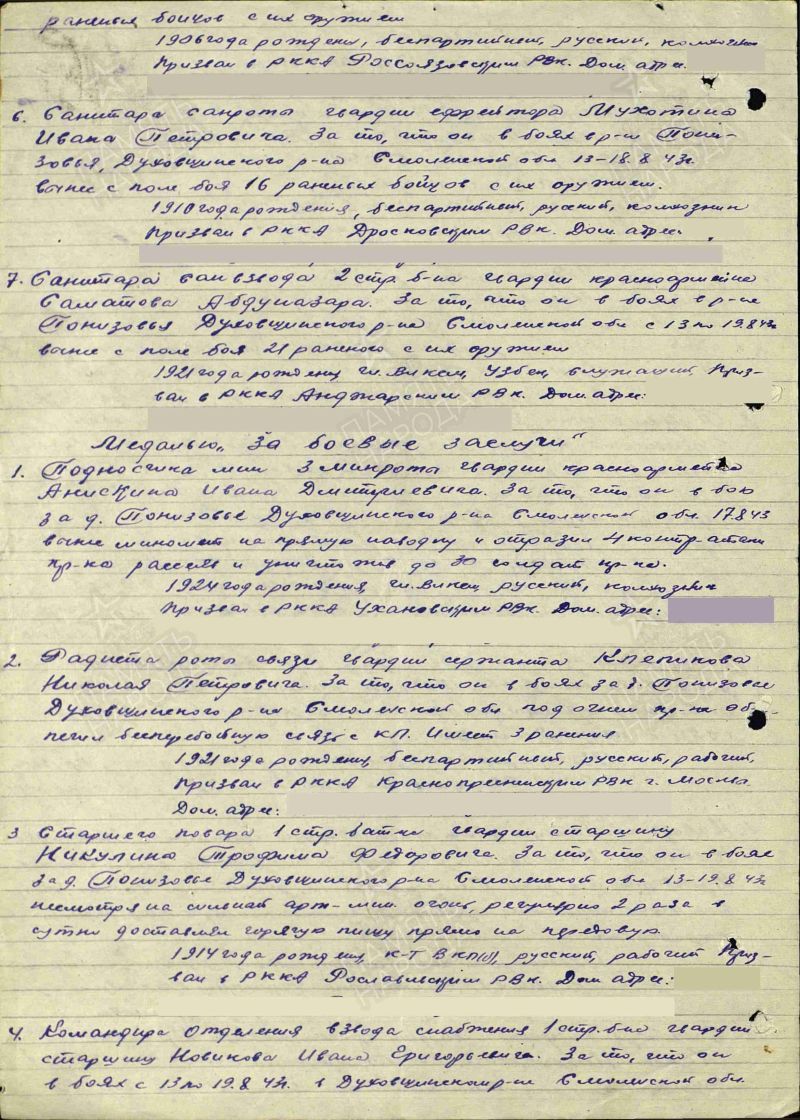 раненых бойцов с их оружием
1906 года рождения, беспартийный, русский, колхозник
Призван в РККА Россошзовским РВК. Дом. адрес:
6. Санитара санроты гвардии ефрейтора Мухотина
Ивана Петровича. За то, что он в боях в р-не Пони-
зовья, Духовщинского р-на Смоленской обл 13-18.8.43г.
вынес с поле боя 16 раненых бойцов с их оружием.
1910 года рождения, беспартийный, русский, колхозник
Призван в РККА Дросковским РВК. Дом. адрес:
7. Санитара санвзвода 2 стр. б-на гвардии красноармейца
Саматова Абдуназара. За то, что он в боях в р-не
Понизовья Духовщинского р-на Смоленской обл с 13 по 19.8.43г
вынес с поле боя 21 раненого с их оружием
1921 года рождения, чл. ВЛКСМ, Узбек, служащий, Приз-
ван в РККА Анджарским РВК. Дом. адрес:
Медалью „За боевые заслуги"
1. Подносчика мин 3 минроты гвардии красноармейца
Анискина Ивана Дмитриевича. За то, что он в бою
за д. Понизовье Духовщинского р-на Смоленской обл. 17.8.43
вынес миномет на прямую наводку и отразил 4 контр-атаки
пр-ка рассеяв и уничтожив до 30 солдат пр-ка.
1924 года рождения, чл. ВЛКСМ, русский, колхозник
Призван в РККА Ухановским РВК. Дом. адрес:
2. Радиста роты связи гвардии сержанта Клепикова
Николая Петровича. За то, что он в боях за д. Понизовье
Духовщинского р-на Смоленской обл под огнем пр-ка обес-
печил бесперебойную связь с КП. Имеет 3 ранения
1921 года рождения, беспартийный, русский, рабочий,
Призван в РККА Краснопресненским РВК г. Москвы.
Дом. адрес:
3 Старшего повара 1 стр. бат-на гвардии старшину
Никулина Трофима Федоровича. За то, что он в боях
за д. Понизовье Духовщинского р-на Смоленской обл 13-19.8.43г
несмотря на сильный арт-мин. огонь, регулярно 2 раза в
сутки доставлял горячую пищу прямо на передовую.
1914 года рождения, к-т ВКП(б), русский, рабочий Приз-
ван в РККА Рославльским РВК. Дом. адрес:
4. Командира отделения взвода снабжения 1 стр. б-на гвардии
старшину Новикова Ивана Григорьевича. За то, что он
в боях с 13 по 19.8.43г. в Духовщинском р-не Смоленской обл.